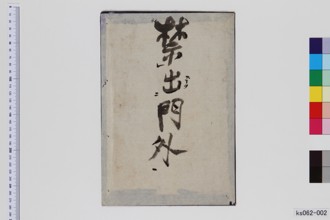 禁出門外
ks062-002